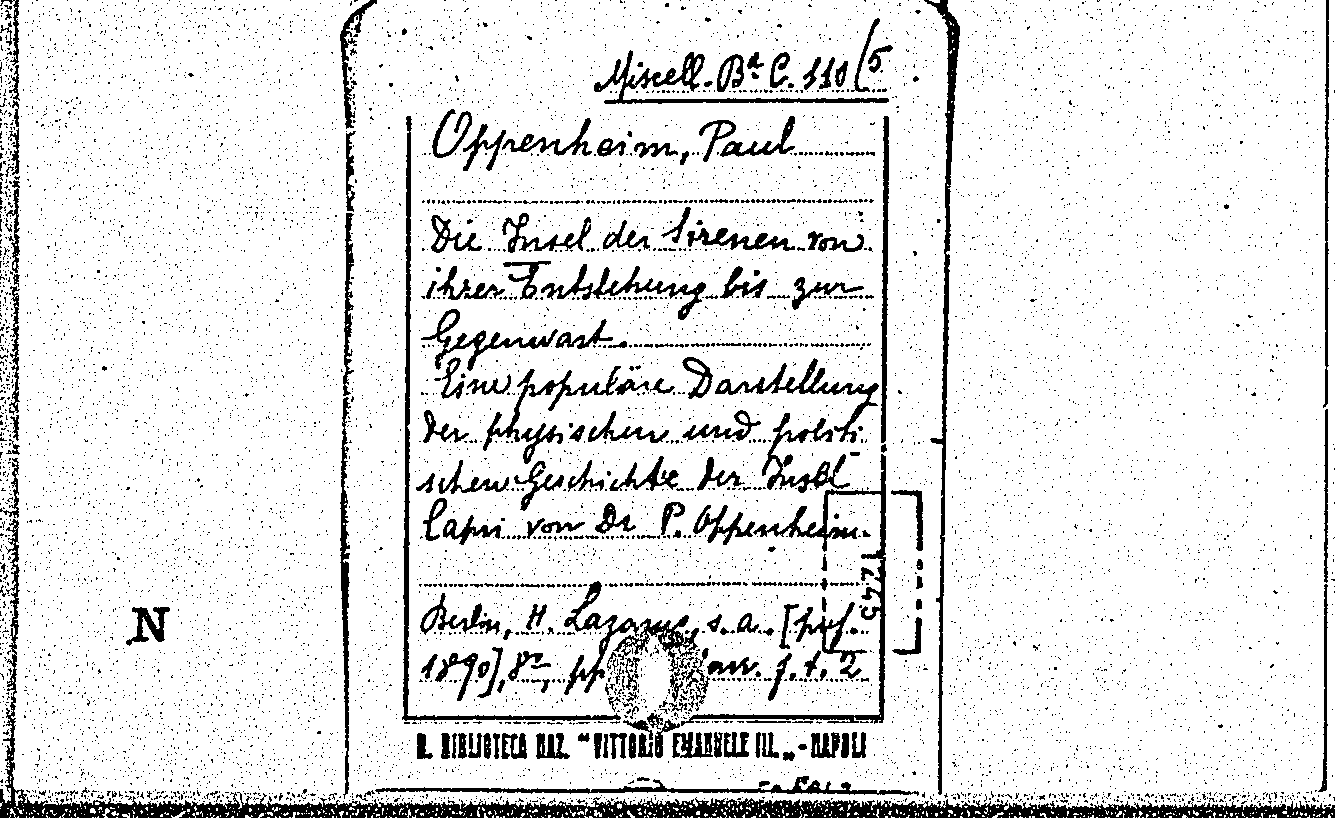 Miscell. Bª C. 110/5
Oppenheim, Paul
Die Insel der Sirenen von
ihrer Entstehung bis zur
Gegenwart.
Eine populäre Darstellung
der physischen und politi
schen Geschichte der Insel
Capri von Dr P. Oppenheim.
1245
Berlin, H. Lazarus, s. a. [pref.
1890], 8º, pp f. t. 2
N
R. BIBLIOTECA NAZ. "VITTORIO EMANUELE III.„ - NAPOLI